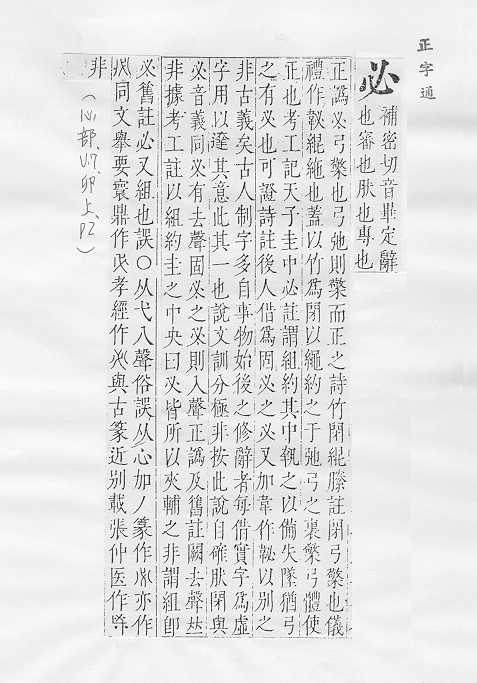 正字通
必
補密切音畢定辭
也審也肰也專也
正譌必弓檠也弓弛則檠而正之詩竹閉緄縢註閉弓檠也儀
禮作䪐緄繩也蓋以竹爲閉以繩約之于弛弓之裏檠弓體使
正也考工記天子圭中必註謂組約其中執之以備失墜猶弓
之有必也可證詩註後人借爲固必之必又加韋作䪐以別之
非古義矣古人制字多自事物始後之修辭者每借實字爲虛
字用以達其意此其一也說文訓分極非按此說自確肰閉與
必音義同必有去聲固必之必則入聲正譌及舊註闕去聲𠀤
非據考工註以組約圭之中央曰必皆所以夾輔之非謂組卽
必舊註必又組也誤〇从弋八聲俗誤从心加丿篆作𠈌亦作
同文舉要寰鼎作 孝經作 與古篆近別載張仲医作
非
(心部,卯上,P2)